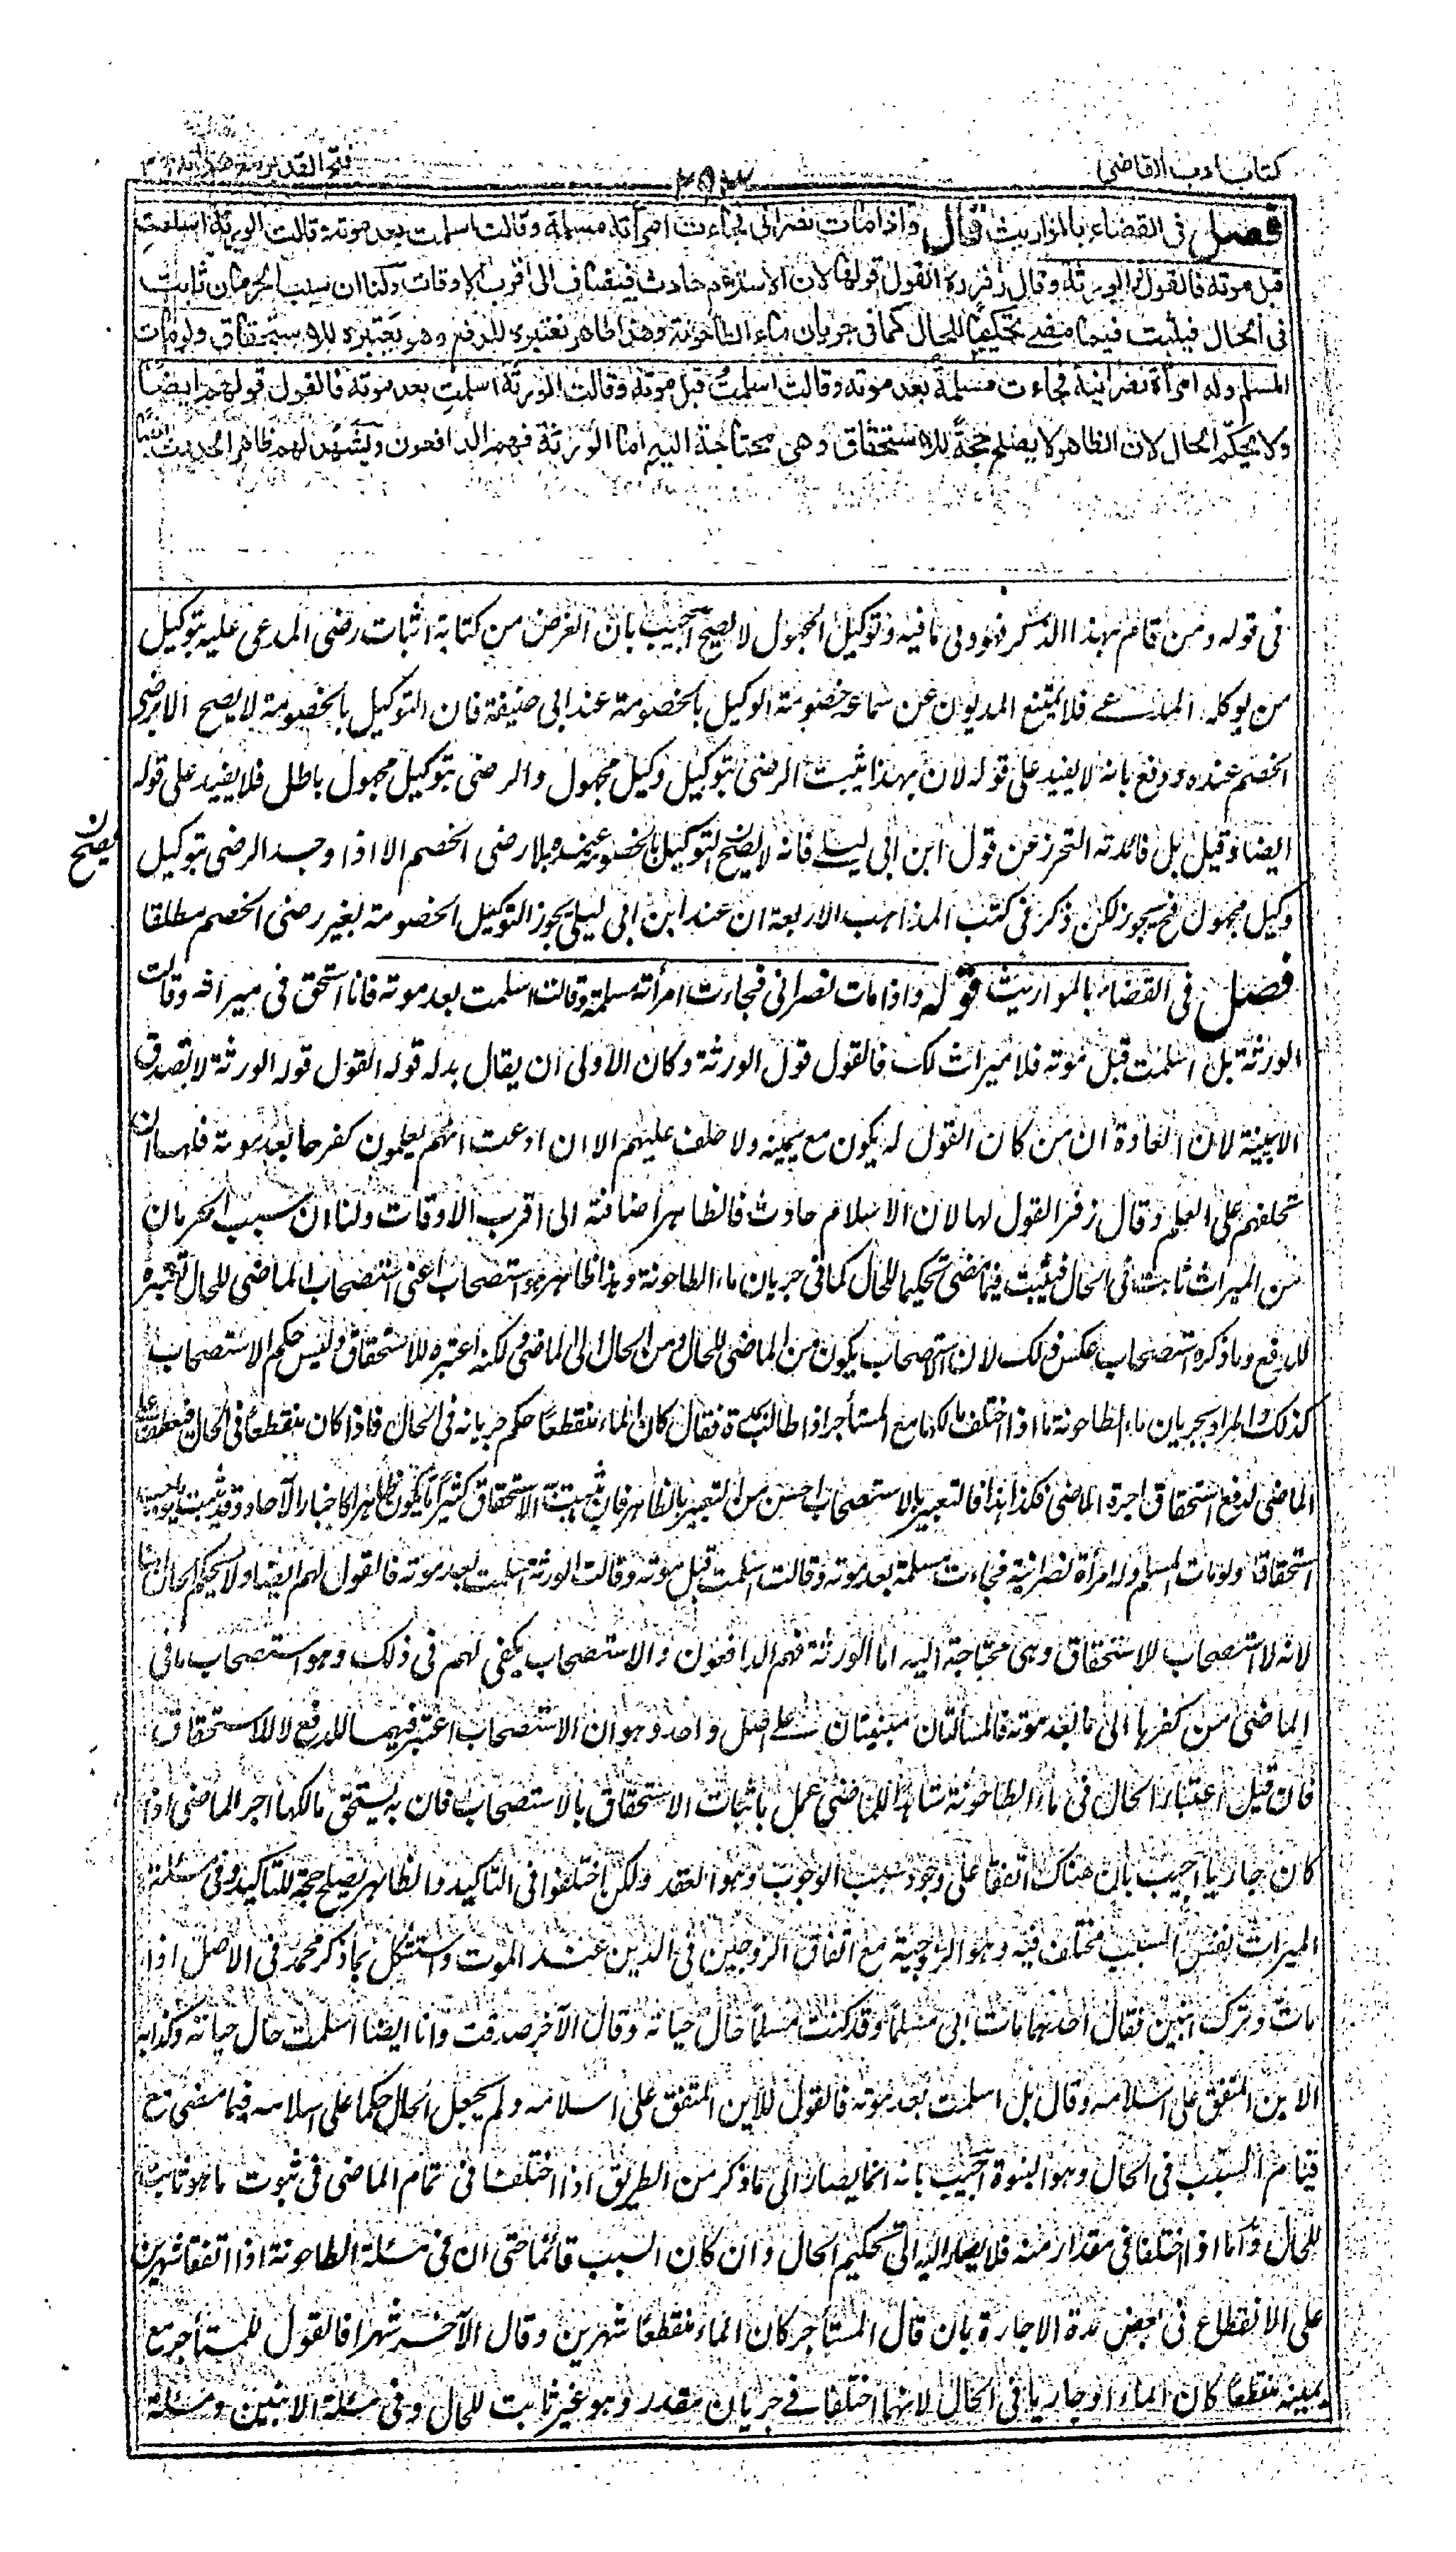 كتاب ادب القاضى
فتح القدير مع هداية
فصل فى القضاء بالمواريث قال واذا مات نصرانى فجاءت امرأته مسلمة وقالت اسلمت بعد موته وقالت الورثة اسلمت
قبل موته فالقول قول الورثة وقال زفر ره القول قولها لان الاسلام حادث فيضاف الى اقرب الاوقات ولنا ان سبب الحرمان ثابت
فى الحال فيثبت فيما مضى تحكيما للحال كما فى جريان ماء الطاحونة وهذا ظاهر نعتبره للدفع وهو يعتبره للاستحقاق ولو مات
المسلم وله امرأة نصرانية فجاءت مسلمة بعد موته وقالت اسلمتُ قبل موته وقالت الورثة اسلمتِ بعد موته فالقول قولهم ايضا
ولا يحكّم الحال لان الظاهر لا يصلح حجةً للاستحقاق وهى محتاجة اليه اما الورثة فهم الدافعون ويشهد لهم ظاهر الحدوث ايضا
فى قوله ومن قام بهذا الذكر فهو ولى ما فيه وتوكيل المجهول لا يصح اجيب بان الغرض من كتابة اثبات رضى المدعى عليه بتوكيل
من يوكله المدعى فلا يمتنع المديون عن سماعه خصومة الوكيل بالخصومة عند ابى حنيفة فان التوكيل بالخصومة لا يصح الا برضى
الخصم عنده ودفع بانه لا يفيد على قوله لان بهذا يثبت الرضى بتوكيل وكيل مجهول والرضى بتوكيل مجهول باطل فلا يفيد على قوله
ايضا وقيل بل فائدته التحرز عن قول ابن ابى ليلى فانه لا يصح التوكيل بالخصومة عنده بلا رضى الخصم الا اذا وجد الرضى بتوكيل
يصح
وكيل مجهول فح يجوز لكن ذكر فى كتب المذاهب الاربعة ان عند ابن ابى ليلى يجوز التوكيل الخصومة بغير رضى الخصم مطلقا
فصل فى القضاء بالمواريث قوله واذا مات نصرانى فجاءت امرأته مسلمة وقالت اسلمت بعد موته فانا استحق فى ميراثه وقالت
الورثة بل اسلمت قبل موته فلا ميراث لك فالقول قول الورثة وكان الاولى ان يقال بدله قوله القول قوله الورثة لا تصدق
الا ببينة لان العادة ان من كان القول له يكون مع يمينه ولا حلف عليهم الا ان ادعت انهم يعلمون كفرها بعد موته فلها ان
تحلفهم على العلم وقال زفر القول لها لان الاسلام حادث فالظاهر اضافته الى اقرب الاوقات ولنا ان سبب الحرمان
من الميراث ثابت فى الحال فيثبت فيما مضى تحكيما للحال كما فى جريان ماء الطاحونة وهذا ظاهر هو استصحاب اعنى استصحاب الماضى للحال نعتبره
للدفع وما ذكره استصحاب عكس ذلك لان الاستصحاب يكون من الماضى للحال ومن الحال الى الماضى لكنه اعتبره للاستحقاق وليس حكم الاستصحاب
كذلك والمراد بجريان ماء الطاحونة ما اذا اختلف مالكها مع المستأجر اذا طالبه بالاجرة فقال كان الماء منقطعا حكم جريانه فى الحال فاذا كان منقطعا فى الحال
الماضى لدفع استحقاق اجرة الماضى فكذا هذا فالتعبير بالاستصحاب احسن من التعبير بالظاهر فان ما يثبت به الاستحقاق كثيرا ما يكون ظاهرا كاخبار الآحاد
استحقاقا ولو مات المسلم وله امرأة نصرانية فجاءت مسلمة بعد موته وقالت اسلمت قبل موته وقالت الورثة اسلمت بعد موته فالقول لهم ايضا ولا يحكم الحال
لانه لا استصحاب للاستحقاق وهى محتاجة اليه اما الورثة فهم الدافعون والاستصحاب يكفى لهم فى ذلك وهو استصحاب ما فى
الماضى من كفرها الى ما بعد موته فالمسألتان مبنيتان على اصل واحد وهو ان الاستصحاب اعتبر فيهما للدفع لا للاستحقاق
فان قيل اعتبار الحال فى ماء الطاحونة شاهدا للماضى عمل باثبات الاستحقاق بالاستصحاب فان به يستحق مالكها اجر الماضى اذا
كان جاريا اجيب بان هناك اتفقا على وجود سبب الوجوب وهو العقد ولكن اختلفوا فى التاكيد والظاهر يصلح حجة للتاكيد وفى مسئلة
الميراث نفس السبب مختلف فيه وهو الزوجية مع اتفاق الزوجين فى الدين عند الموت واستشكل بما ذكر محمد فى الاصل اذا
مات وترك ابنين فقال احدهما مات ابى مسلما وقد كنت مسلما حال حياته وقال الآخر صدقت وانا ايضا اسلمت حال حياته وكذبه
الابن المتفق على اسلامه وقال بل اسلمت بعد موته فالقول للابن المتفق على اسلامه ولم يجعل الحال حكما على اسلامه فيما مضى مع
قيام السبب فى الحال وهو البنوة اجيب بانه انما يصار الى ما ذكر من الطريق اذا اختلفا فى تمام الماضى فى ثبوت ما هو ثابت
للحال واما اذا اختلفا فى مقدار منه فلا يصار اليه الى تحكيم الحال وان كان السبب قائما حتى ان فى مسئلة الطاحونة اذا اتفقا
على الانقطاع فى بعض مدة الاجارة بان قال المستأجر كان الماء منقطعا شهرين وقال الآخر شهرا فالقول للمستأجر مع
يمينه منقطعا كان الماء او جاريا فى الحال لانهما اختلفا فى جريان مقدر وهو غير ثابت للحال وفى مسئلة الابنين ومسئلة